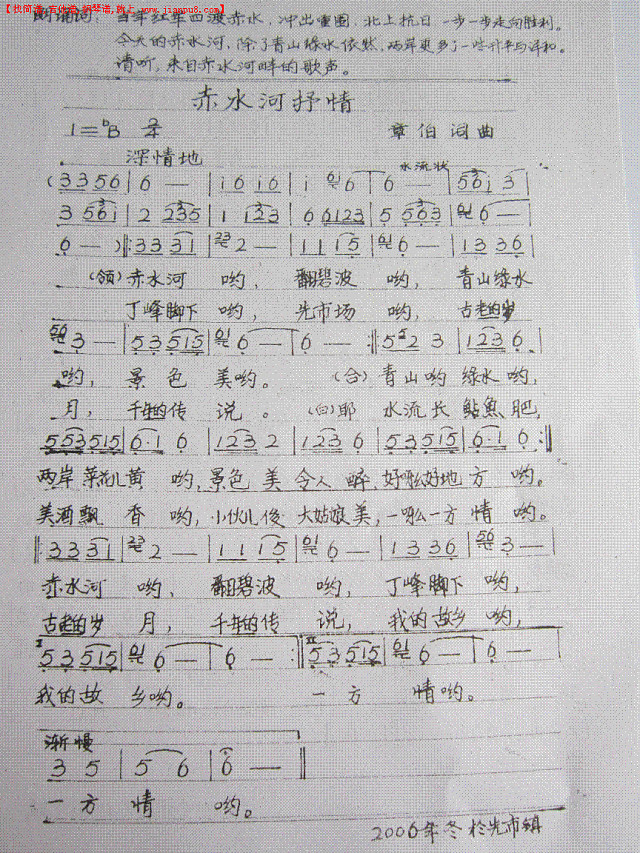 【找简谱,吉他谱,钢琴谱,就上 www.jianpu8.com】
朗诵词：当年红军四渡赤水，冲出重围，北上抗日，一步一步走向胜利。
今天的赤水河，除了青山绿水依然，两岸更多了一些升平与详和。
请听，来自赤水河畔的歌声。
赤水河抒情
1=♭B 2/4 章伯 词曲
深情地
水流状
(3 3 5 6 | 6 — | i 6 i 6 | i 6 | 6 — | 5 6 i 3 |
3 5 6 i | 2 2 3 5 | 1 1 2 3 | 6 6 1 2 3 | 5 5 6 3 | 6 — |
6 — ) ‖: 3 3 3 1 | 2 — | 1 1 1 5 | 6 — | 1 3 3 6 |
（领）赤水河 哟， 翻碧波 哟， 青山绿水
丁峰脚下 哟， 先市场 哟， 古老的岁
3 — | 5 3 5 1 5 | 6 — | 6 — :‖ 5 2 3 | 1 2 3 6 |
哟， 景 色 美哟。 （合）青山哟 绿水哟，
月， 千年的传 说。 （白）耶 水流长 鲇鱼肥，
5 5 3 5 1 5 | 6·1 6 | 1 2 3 2 | 1 2 3 6 | 5 3 5 1 5 | 6·1 6 :‖
两岸 菜花儿黄 哟，景色 美 令人 醉，好吆好地 方 哟。
美酒飘 香 哟，小伙儿俊 大姑娘美，一吆一方 情 哟。
‖: 3 3 3 1 | 2 — | 1 1 1 5 | 6 — | 1 3 3 6 | 3 — |
赤水河 哟， 翻碧波 哟， 丁峰脚下 哟，
古老的岁 月， 千年的传 说， 我的故乡 哟，
5 3 5 1 5 | 6 — | 6 — :‖ 5 3 5 1 5 | 6 — | 6 — |
我的故 乡哟。 一方 情哟。
渐慢
3 5 | 5 6 | 6 — ‖
一方 情 哟。
2006年冬 於先市镇